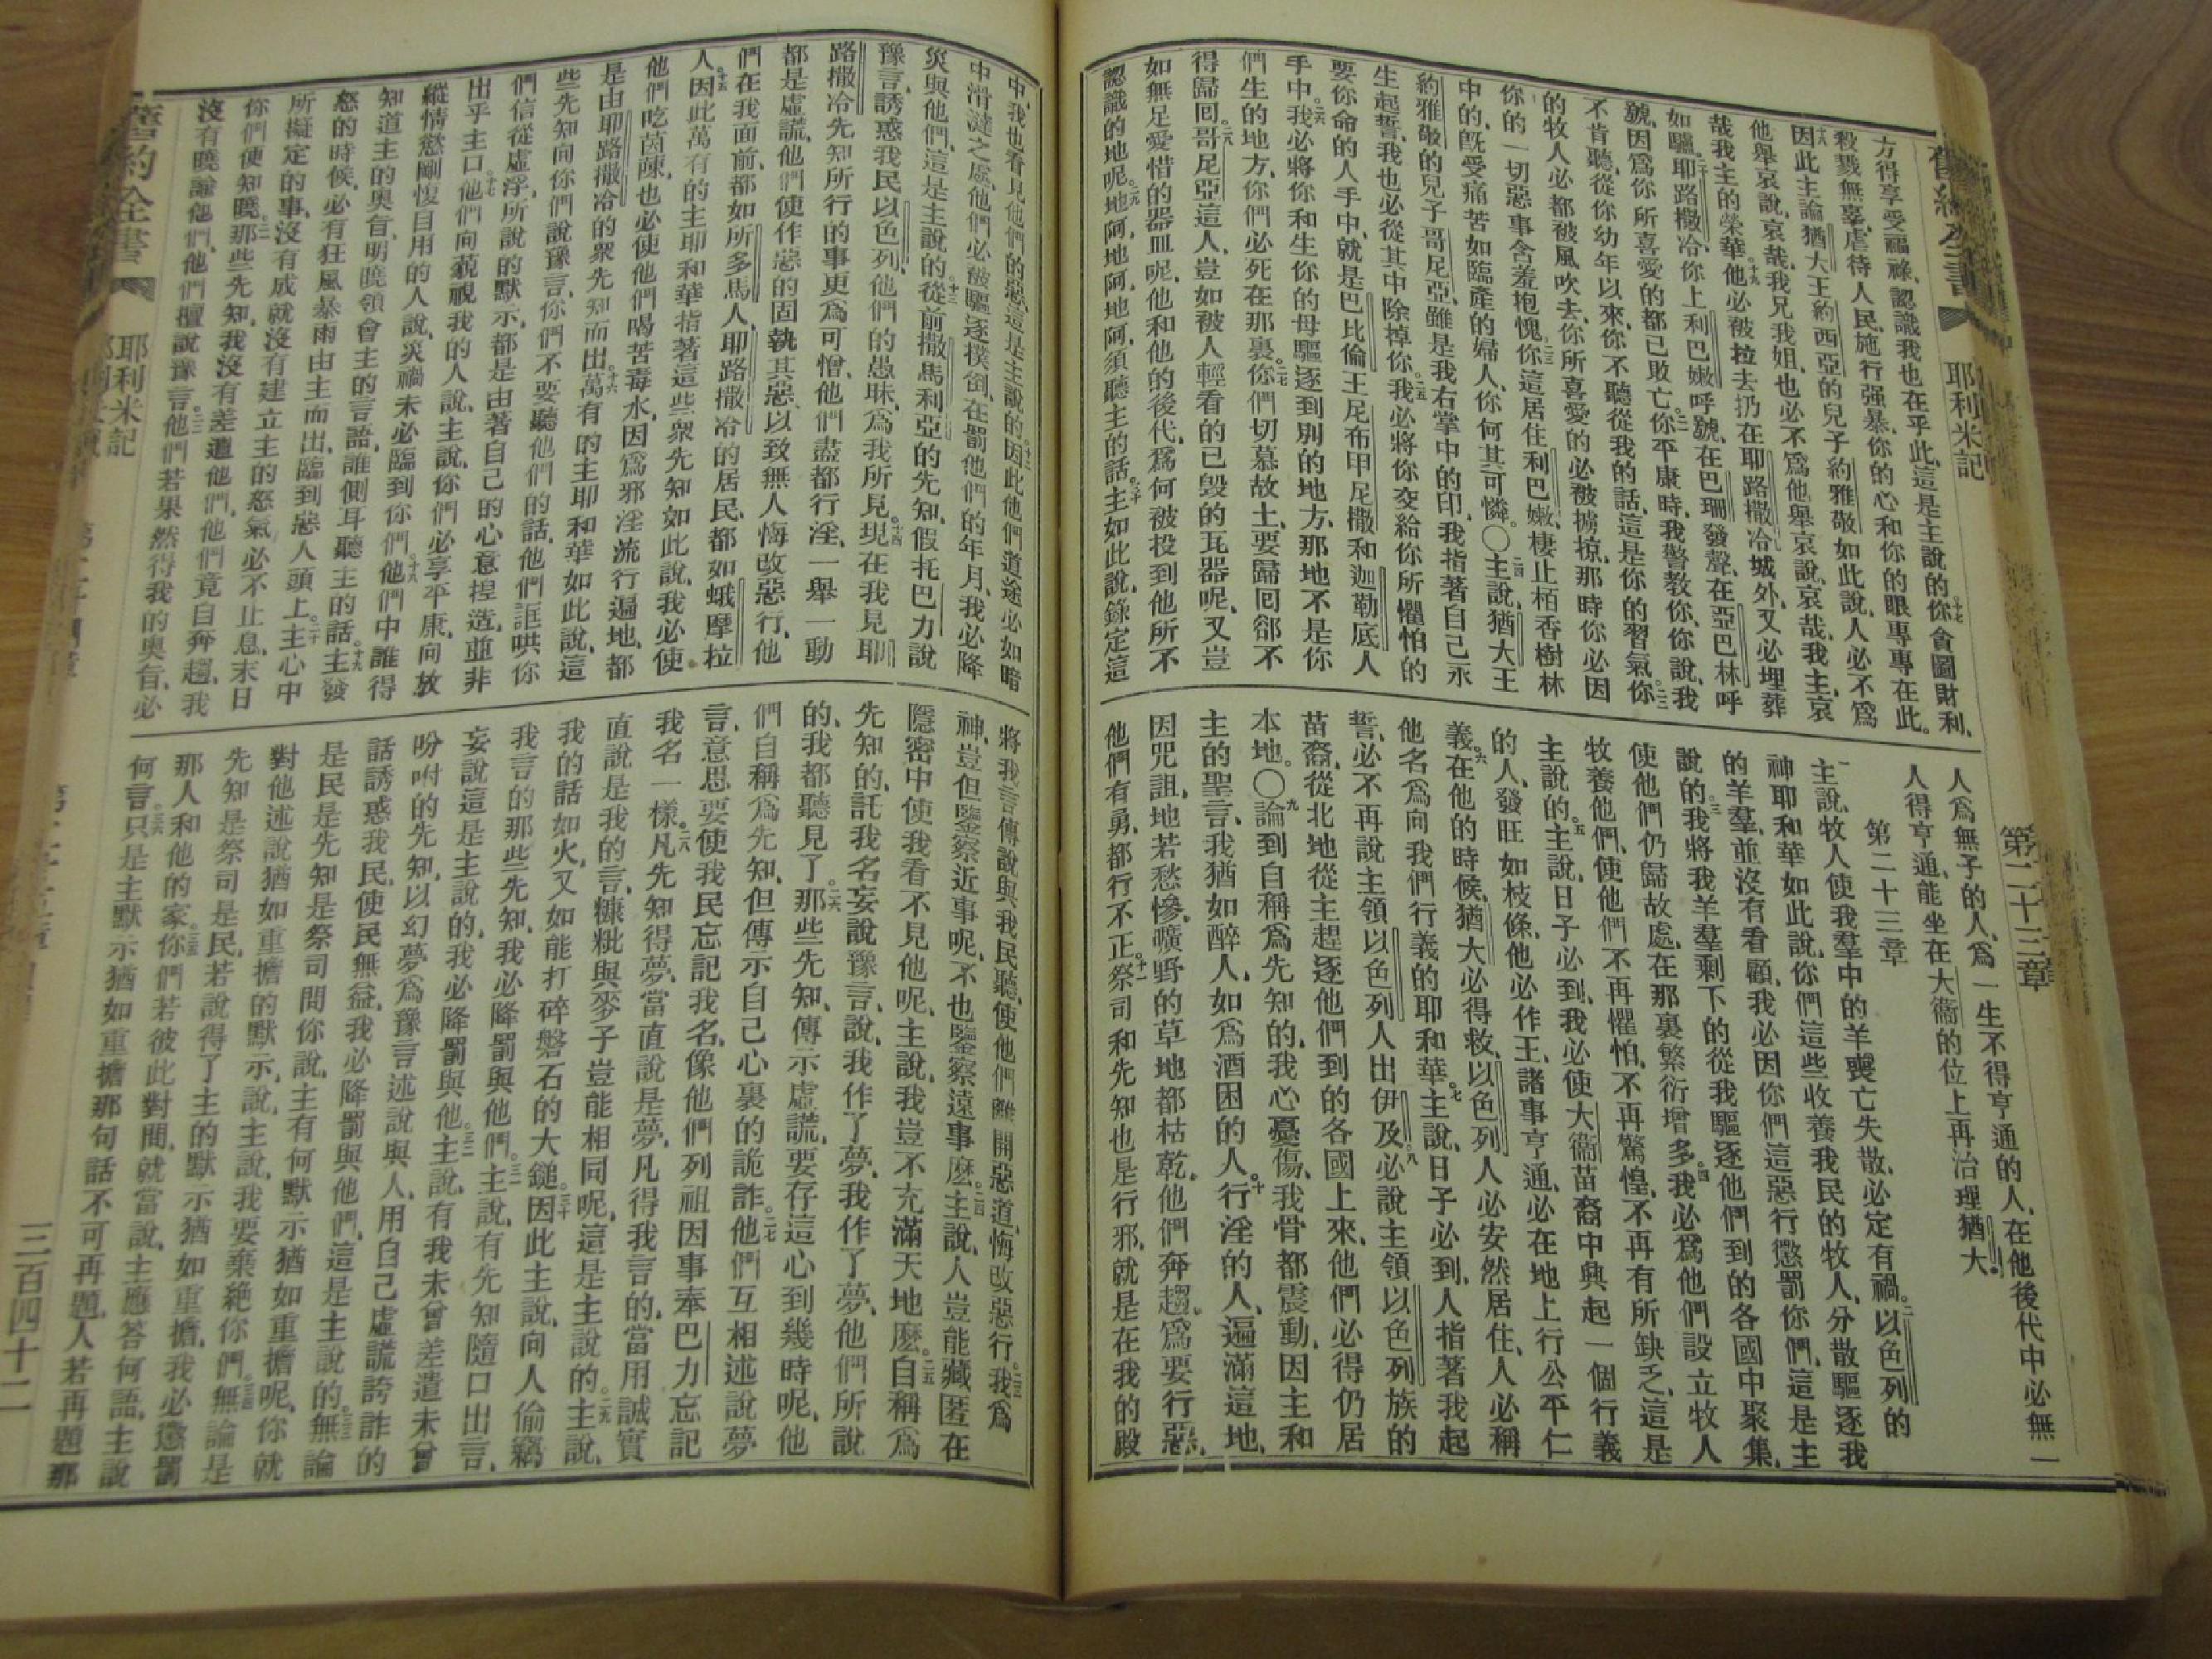 舊約全書
耶利米記
第二十三章
方得享受福祿、認識我也在乎此、這是主說的、十七你貪圖財利、
殺戮無辜、虐待人民、施行强暴、你的心和你的眼專專在此。
十八因此主論猶大王約西亞的兒子約雅敬如此說、人必不爲
他舉哀說、哀哉、我兄我姐、也必不爲他舉哀說、哀哉、我主、哀
哉我主的榮華、十九他必被拉去扔在耶路撒冷城外、又必埋葬
如驢、二十耶路撒冷你上利巴嫩呼號、在巴珊發聲、在亞巴林呼
號、因爲你所喜愛的都已敗亡、二一你平康時、我警教你、你說、我
不肯聽、從你幼年以來、你不聽從我的話、這是你的習氣、二二你
的牧人必都被風吹去、你所喜愛的必被擄掠、那時你必因
你的一切惡事含羞抱愧、二三你這居住利巴嫩、棲止栢香樹林
中的、旣受痛苦如臨產的婦人、你何其可憐。〇二四主說、猶大王
約雅敬的兒子哥尼亞、雖是我右掌中的印、我指著自己永
生起誓、我也必從其中除掉你、二五我必將你交給你所懼怕的
要你命的人手中、就是巴比倫王尼布甲尼撒和迦勒底人
手中、二六我必將你和生你的母驅逐到別的地方、那地不是你
們生的地方、你們必死在那裏、二七你們切慕故土、要歸囘卻不
得歸囘、二八哥尼亞這人、豈如被人輕看的已毀的瓦器呢、又豈
如無足愛惜的器皿呢、他和他的後代、爲何被投到他所不
認識的地呢、二九地阿、地阿、地阿、須聽主的話、三十主如此說、錄定這
人爲無子的人、爲一生不得亨通的人、在他後代中必無一
人得亨通、能坐在大衞的位上再治理猶大、
第二十三章
一主說、牧人使我羣中的羊喪亡失散、必定有禍、二以色列的
神耶和華如此說、你們這些收養我民的牧人、分散驅逐我
的羊羣、並沒有看顧、我必因你們這惡行懲罰你們、這是主
說的、三我將我羊羣剩下的從我驅逐他們到的各國中聚集、
使他們仍歸故處、在那裏繁衍增多、四我必爲他們設立牧人
牧養他們、使他們不再懼怕、不再驚惶、不再有所缺乏、這是
主說的、五主說、日子必到、我必使大衞苗裔中興起一個行義
的人、發旺如枝條、他必作王、諸事亨通、必在地上行公平仁
義、六在他的時候、猶大必得救、以色列人必安然居住、人必稱
他名爲向我們行義的耶和華、七主說、日子必到、人指著我起
誓、必不再說主領以色列人出伊及、八必說主領以色列族的
苗裔、從北地從主趕逐他們到的各國上來、他們必得仍居
本地。〇九論到自稱爲先知的、我心憂傷、我骨都震動、因主和
主的聖言、我猶如醉人、如爲酒困的人、十行淫的人、遍滿這地、
因咒詛、地若愁慘、曠野的草地都枯乾、他們奔趨、爲要行惡、
他們有勇、都行不正、十一祭司和先知也是行邪、就是在我的殿
中、我也看見他們的惡、這是主說的、十二因此他們道途必如暗
中滑澾之處、他們必被驅逐撲倒、在罰他們的年月、我必降
災與他們、這是主說的、十三從前撒馬利亞的先知、假托巴力說
豫言、誘惑我民以色列、他們的愚昧、爲我所見、十四現在我見耶
路撒冷先知所行的事更爲可憎、他們盡都行淫、一舉一動
都是虛謊、他們使作惡的固執其惡、以致無人悔改惡行、他
們在我面前、都如所多馬人、耶路撒冷的居民、都如蛾摩拉
人、十五因此萬有的主耶和華指著這些衆先知如此說、我必使
他們吃茵蔯、也必使他們喝苦毒水、因爲邪淫流行遍地、都
是由耶路撒冷的衆先知而出、十六萬有的主耶和華如此說、這
些先知向你們說豫言、你們不要聽他們的話、他們誆哄你
們信從虛浮、所說的默示、都是由著自己的心意揑造、並非
出乎主口、十七他們向藐視我的人說、主說、你們必享平康、向放
縱情慾剛愎自用的人說、災禍未必臨到你們、十八他們中誰得
知道主的奧旨、明曉領會主的言語、誰側耳聽主的話、十九主發
怒的時候、必有狂風暴雨由主而出、臨到惡人頭上、二十主心中
所擬定的事、沒有成就沒有建立、主的怒氣必不止息、末日
你們便知曉、二一那些先知、我沒有差遣他們、他們竟自奔趨、我
沒有曉諭他們、他們擅說豫言、二二他們若果然得我的奧旨、必
將我言傳說與我民聽、使他們離開惡道、悔改惡行、二三我爲
神、豈但鑒察近事呢、不也鑒察遠事麽、二四主說、人豈能藏匿在
隱密中使我看不見他呢、主說、我豈不充滿天地麽、二五自稱爲
先知的、託我名妄說豫言、說、我作了夢、我作了夢、他們所說
的、我都聽見了、二六那些先知、傳示虛謊、要存這心到幾時呢、他
們自稱爲先知、但傳示自己心裏的詭詐、二七他們互相述說夢
言、意思要使我民忘記我名、像他們列祖因事奉巴力忘記
我名一樣、二八凡先知得夢、當直說是夢、凡得我言的、當用誠實
直說是我的言、糠粃與麥子豈能相同呢、這是主說的、二九主說、
我的話如火、又如能打碎磐石的大鎚、三十因此主說、向人偷竊
我言的那些先知、我必降罰與他們、三一主說、有先知隨口出言、
妄說這是主說的、我必降罰與他、三二主說、有我未曾差遣未曾
吩咐的先知、以幻夢爲豫言述說與人、用自己虛謊誇詐的
話誘惑我民、使民無益、我必降罰與他們、這是主說的、三三無論
是民是先知是祭司問你說、主有何默示猶如重擔呢、你就
對他述說猶如重擔的默示、說、主說、我要棄絕你們、三四無論是
先知是祭司是民、若說得了主的默示猶如重擔、我必懲罰
那人和他的家、三五你們若彼此對問、就當說、主應答何語、主說
何言、三六只是主默示猶如重擔那句話不可再題、人若再題那
舊約全書
耶利米記
三百四十二